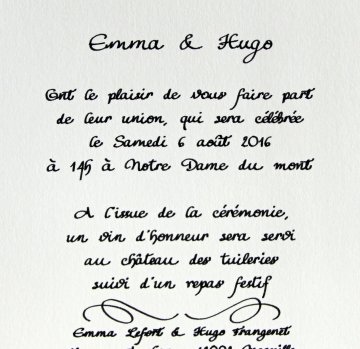 Emma & Hugo
Ont le plaisir de vous faire part
de leur union, qui sera célébrée
le Samedi 6 août 2016
à 14h à Notre Dame du mont
A l'issue de la cérémonie,
un vin d'honneur sera servi
au château des tuileries
suivi d'un repas festif
Emma Lefort & Hugo Frangenet